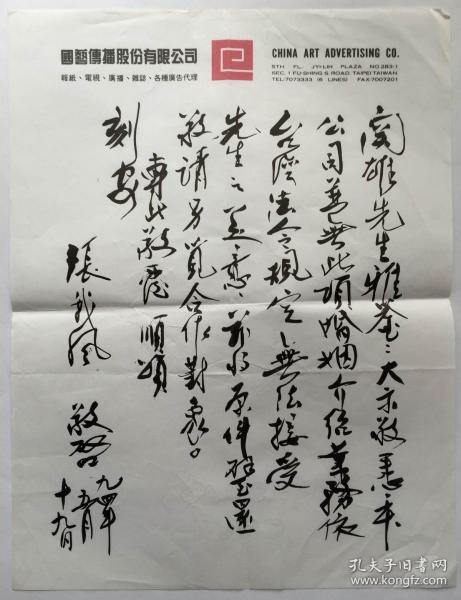 國藝傳播股份有限公司
報紙、電視、廣播、雜誌、各種廣告代理
CHINA ART ADVERTISING CO.
5TH FL. JYI-LIH PLAZA NO.283-1
SEC. 1 FU-SHING S. ROAD. TAIPEI TAIWAN
TEL:7073333 (6 LINES) FAX:7007201
雄先生雅鑒：大示敬悉、本
公司並無此項婚姻介紹業務依
台灣法令之規定、無法接受
先生之美意、茲將原件璧還
敬請另覓合作對象。
專此敬覆 順頌
刻安
張我風 敬啓
九四年
五月
十九日
孔夫子旧书网
www.kongfz.com